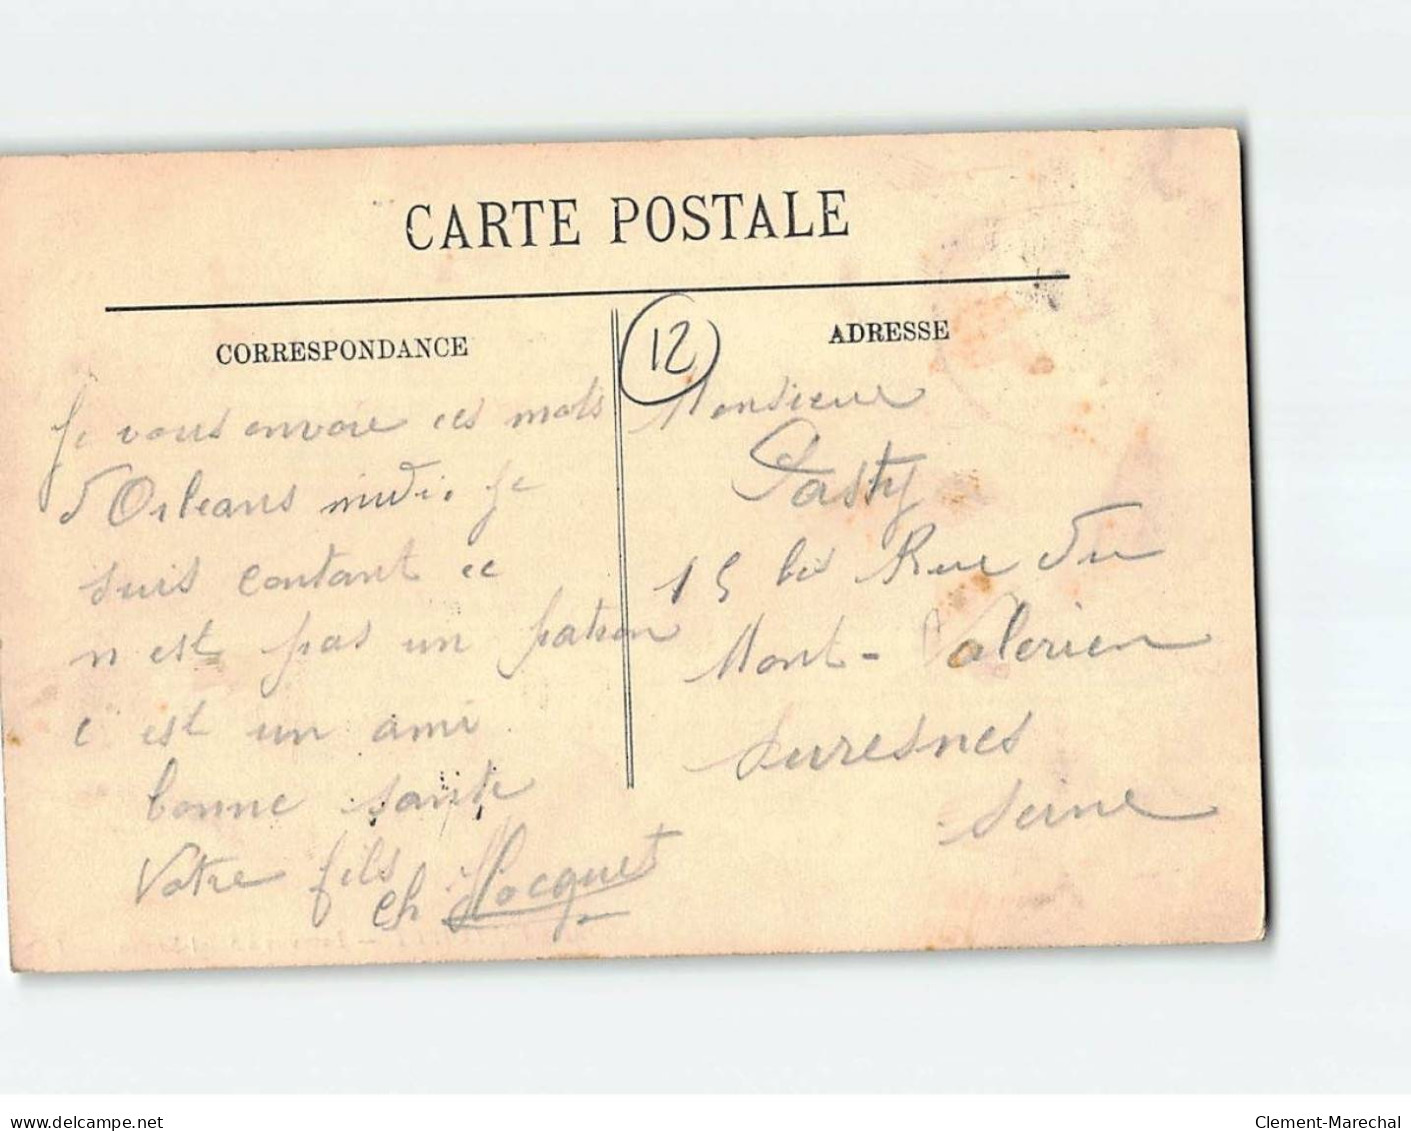 CARTE POSTALE
CORRESPONDANCE
Je vous envoie ces mots
d'Orleans midi. Je
suis contant ce
n est pas un patron
c est un ami
bonne sante
Votre fils
ch Hocquet
12
ADRESSE
Monsieur
Pasty
15 bis Rue du
Mont-Valerien
Suresnes
Seine
delcampe.net
Clement-Marechal